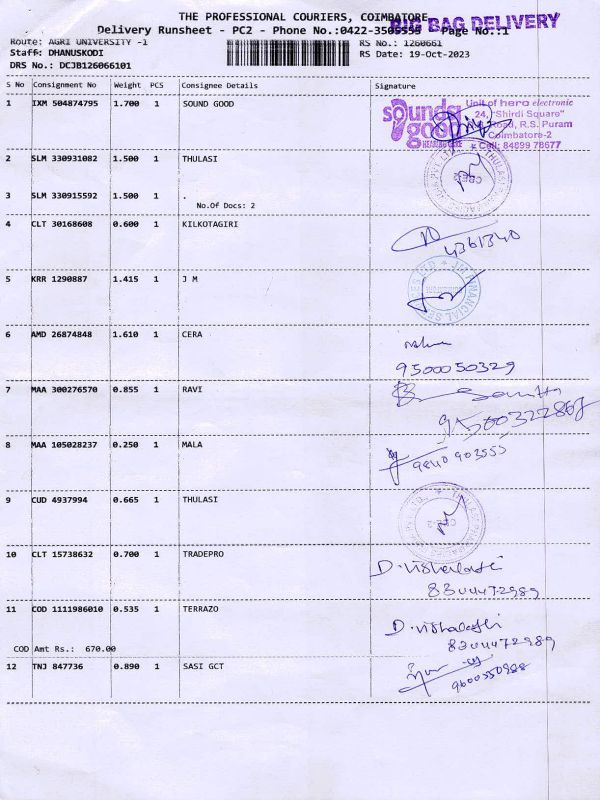 THE PROFESSIONAL COURIERS, COIMBATORE
BIG BAG DELIVERY
Delivery Runsheet - PC2 - Phone No.:0422-3505555 Page No.:1
Route: AGRI UNIVERSITY -1
RS No.: 1260661
Staff: DHANUSKODI
RS Date: 19-Oct-2023
DRS No.: DCJB126066101
S No Consignment No Weight PCS Consignee Details Signature
1 IXM 504874795 1.700 1 SOUND GOOD
Sounda good HEARING CARE
Unit of hera electronic
24, "Shirdi Square"
Road, R.S. Puram
Coimbatore-2
Cell: 84899 78677
2 SLM 330931082 1.500 1 THULASI
CBE-2
3 SLM 330915592 1.500 1 .
No.Of Docs: 2
4 CLT 30168608 0.600 1 KILKOTAGIRI
4361340
5 KRR 1290887 1.415 1 J M
6 AMD 26874848 1.610 1 CERA
9500050329
7 MAA 300276570 0.855 1 RAVI
8 MAA 105028237 0.250 1 MALA
9840903555
9 CUD 4937994 0.665 1 THULASI
CBE-2
10 CLT 15738632 0.700 1 TRADEPRO
D. Vishalashi
8300472989
11 COD 1111986010 0.535 1 TERRAZO
D. Vishalashi
8300472989
COD Amt Rs.: 670.00
12 TNJ 847736 0.890 1 SASI GCT
9600550988